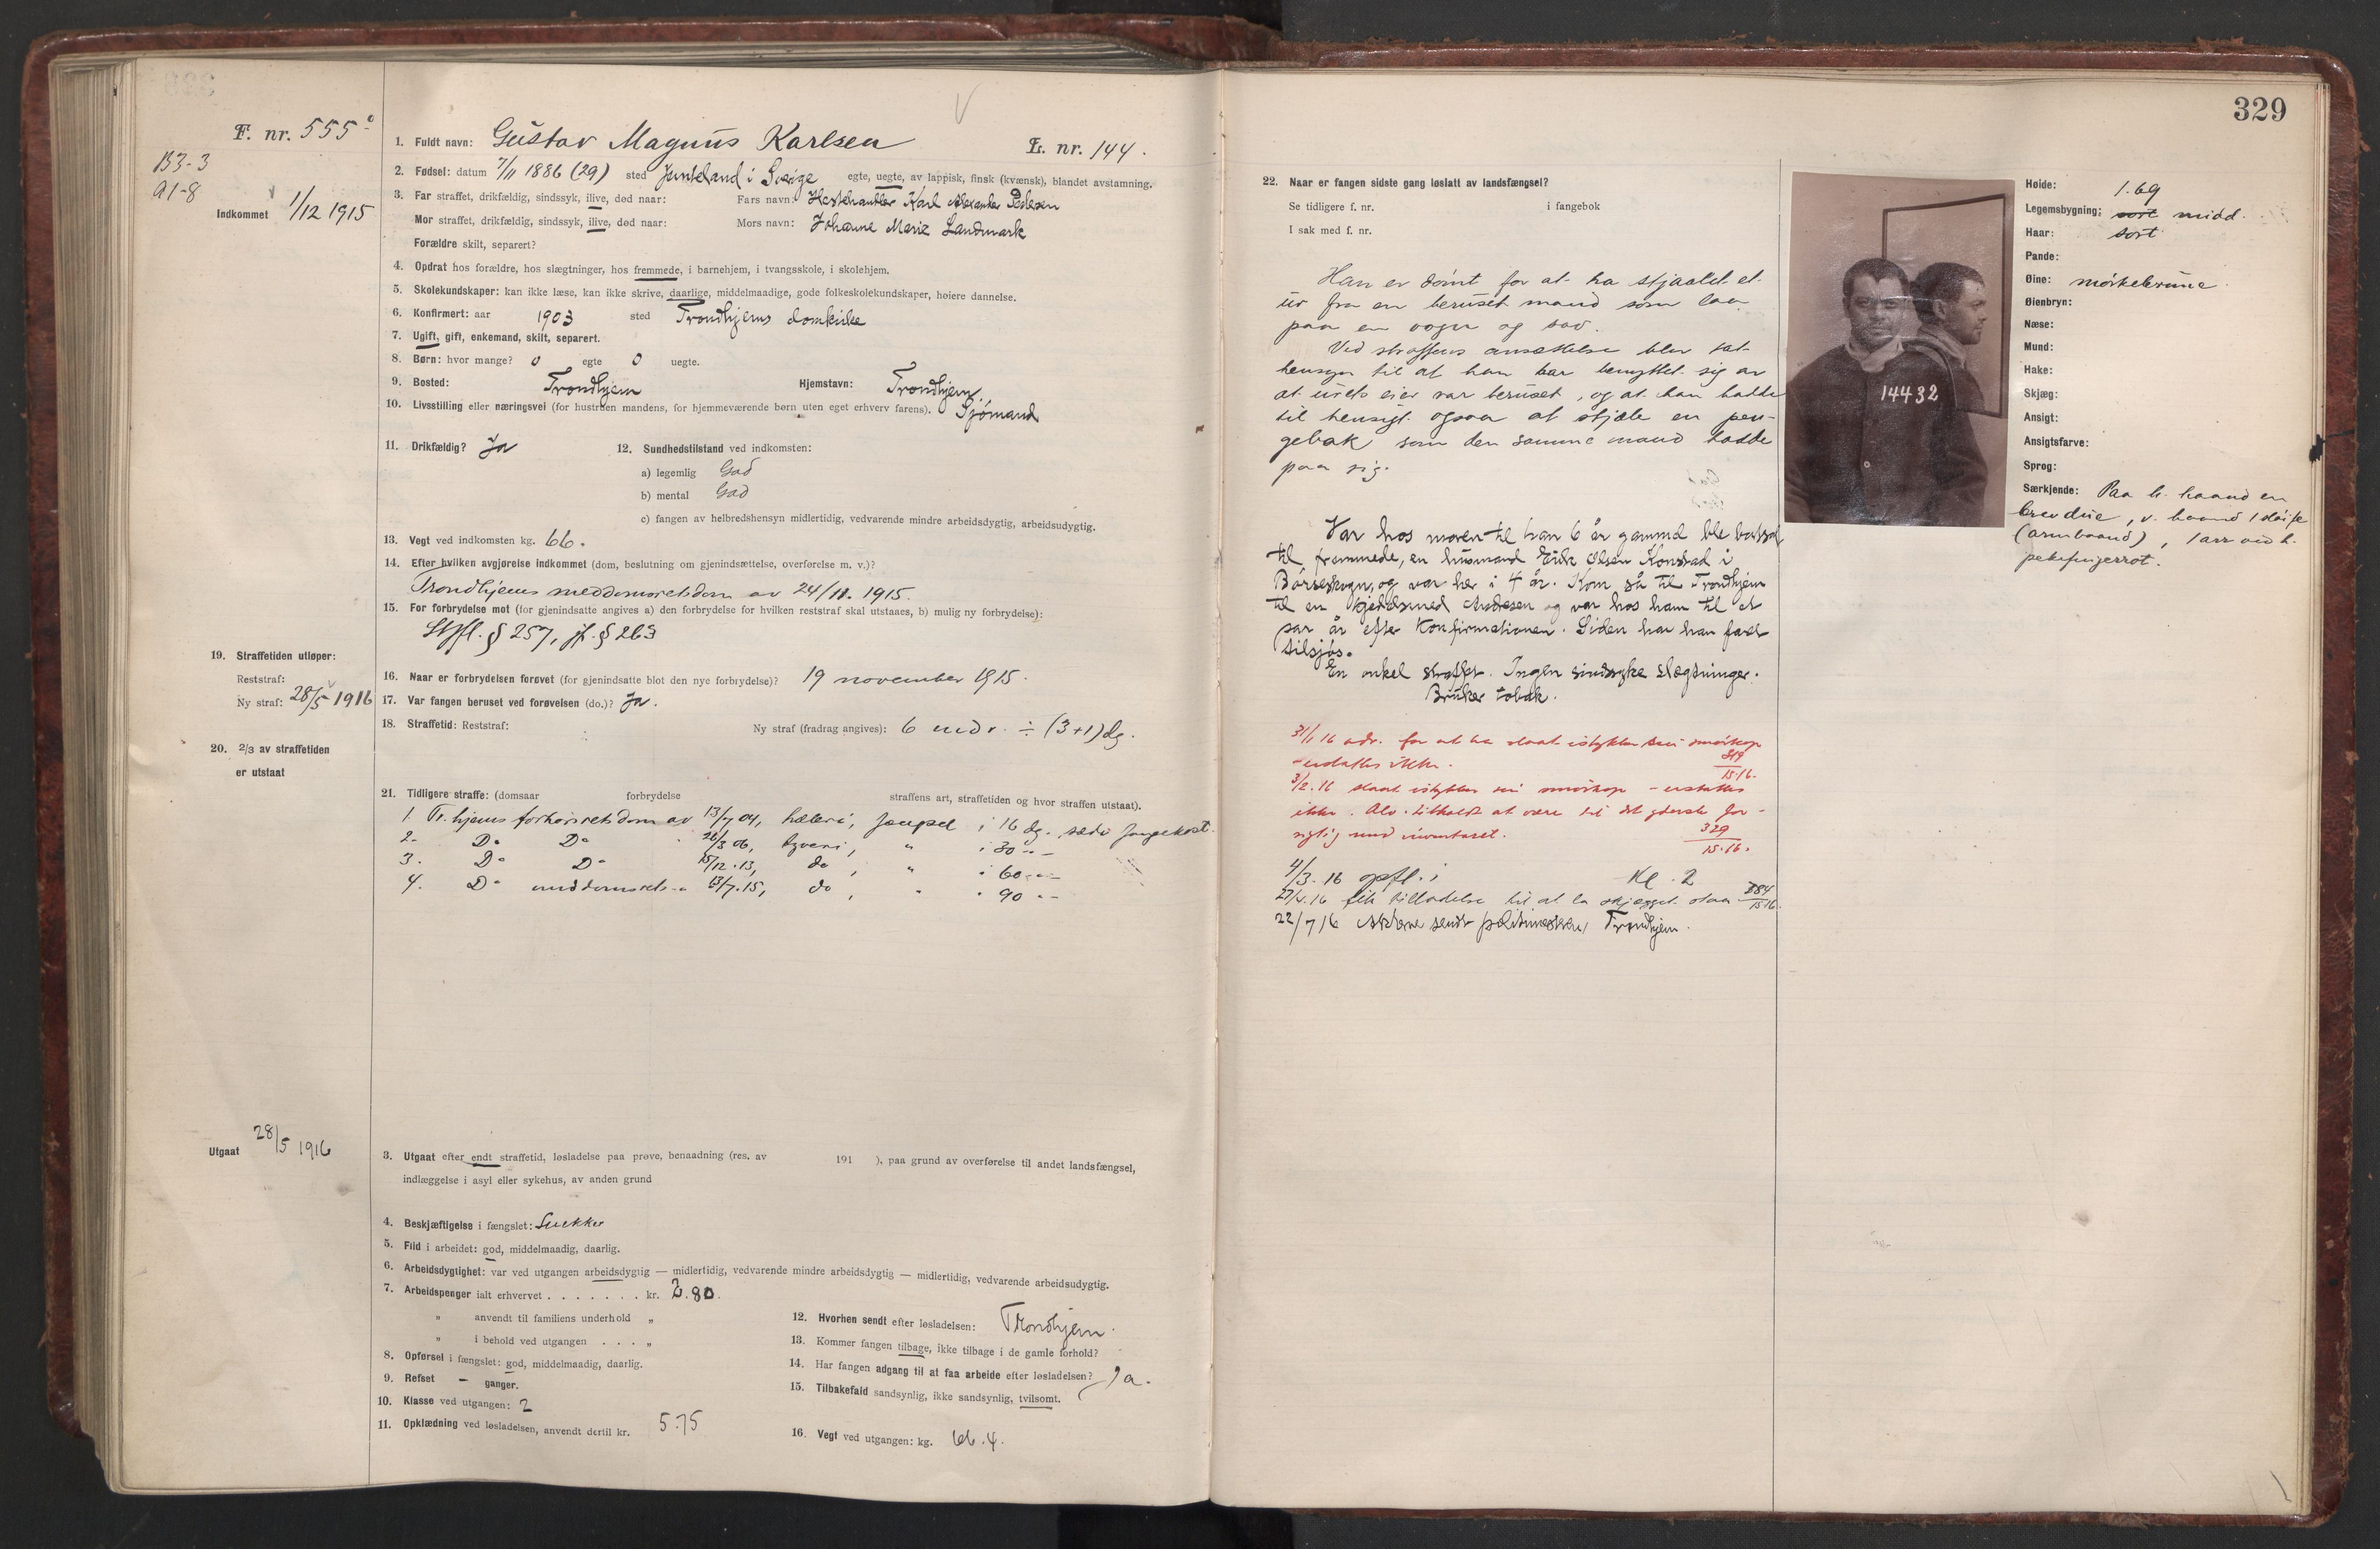 F. nr. 555
B3-3
A1-8
Indkommet 1/12 1915
1. Fuldt navn: Gustav Magnus Karlsen
L. nr. 144.
2. Fødsel: datum 7/11 1886 (29) sted Jemteland i Sverige egte, uegte, av lappisk, finsk (kvænsk), blandet avstamning.
3. Far straffet, drikfældig, sindssyk, ilive, død naar: Fars navn: Hestehandler Karl Alexander Pedersen
Mor straffet, drikfældig, sindssyk, ilive, død naar: Mors navn: Johanne Marie Landmark
Forældre skilt, separert?
4. Opdrat hos forældre, hos slægtninger, hos fremmede, i barnehjem, i tvangsskole, i skolehjem.
5. Skolekundskaper: kan ikke læse, kan ikke skrive, daarlige, middelmaadige, gode folkeskolekundskaper, høiere dannelse.
6. Konfirmert: aar 1903 sted Trondhjems domkirke
7. Ugift, gift, enkemand, skilt, separert.
8. Børn: hvor mange? 0 egte 0 uegte.
9. Bosted: Trondhjem Hjemstavn: Trondhjem
10. Livsstilling eller næringsvei (for hustruen mandens, for hjemmeværende børn uten eget erhverv farens). Sjømand
11. Drikfældig? Ja
12. Sundhedstilstand ved indkomsten:
a) legemlig God
b) mental God
c) fangen av helbredshensyn midlertidig, vedvarende mindre arbeidsdygtig, arbeidsudygtig.
13. Vegt ved indkomsten kg. 66.
14. Efter hvilken avgjørelse indkommet (dom, beslutning om gjenindsættelse, overførelse m. v.)?
Trondhjems meddomsretsdom av 24/11. 1915.
15. For forbrydelse mot (for gjenindsatte angives a) den forbrydelse for hvilken reststraf skal utstaaes, b) mulig ny forbrydelse):
Strfl. § 257, jf. § 263
19. Straffetiden utløper:
Reststraf:
Ny straf: 28/5 1916
16. Naar er forbrydelsen forøvet (for gjenindsatte blot den nye forbrydelse)? 19 november 1915.
17. Var fangen beruset ved forøvelsen (do.)? Ja.
18. Straffetid: Reststraf: Ny straf (fradrag angives): 6 mdr. ÷ (3+1) dg.
20. 2/3 av straffetiden
er utstaat
21. Tidligere straffe: (domsaar forbrydelse straffens art, straffetiden og hvor straffen utstaat).
1. Tr.hjems forhørsretsdom av 13/7 04, hæleri, fængsel i 16 dg. sedv. fangekost.
2. Do Do 26/3 06, tyveri, " i 30 "
3. Do Do 15/12. 13, do, " i 60 "
4. Do meddomsrets " 13/7. 15, do, " " 90 "
Utgaat 28/5 1916
3. Utgaat efter endt straffetid, løsladelse paa prøve, benaadning (res. av 191 ), paa grund av overførelse til andet landsfængsel,
indlæggelse i asyl eller sykehus, av anden grund
4. Beskjæftigelse i fængslet: Snekker
5. Flid i arbeidet: god, middelmaadig, daarlig.
6. Arbeidsdygtighet: var ved utgangen arbeidsdygtig — midlertidig, vedvarende mindre arbeidsdygtig — midlertidig, vedvarende arbeidsudygtig.
7. Arbeidspenger ialt erhvervet . . . . . . . kr. 2.80.
" anvendt til familiens underhold "
" i behold ved utgangen . . . . "
8. Opførsel i fængslet: god, middelmaadig, daarlig.
9. Refset – ganger.
10. Klasse ved utgangen: 2
11. Opklædning ved løsladelsen, anvendt dertil kr. 5.75
12. Hvorhen sendt efter løsladelsen: Trondhjem.
13. Kommer fangen tilbage, ikke tilbage i de gamle forhold?
14. Har fangen adgang til at faa arbeide efter løsladelsen? Ja.
15. Tilbakefald sandsynlig, ikke sandsynlig, tvilsomt.
16. Vegt ved utgangen: kg. 66.4.
329
22. Naar er fangen sidste gang løslatt av landsfængsel?
Se tidligere f. nr. i fangebok
I sak med f. nr.
Han er dømt for at ha stjaalet et
ur fra en beruset mand som laa
paa en vogn og sov.
Ved straffens ansættelse blev tat
hensyn til at han har benyttet sig av
at urets eier var beruset, og at han hadde
til hensigt ogsaa at stjæle en pen-
gebok som den samme mand hadde
paa sig.
Var hos moren til han 6 år gammel ble bortsat
til fremmede, en husmand Erik Olsen Konstad i
Børseskogn, og var her i 4 år. Kom så til Trondhjem
til en kjedelsmed Andresen og var hos ham til et
par år efter Konfirmationen. Siden har han faret
tilsjøs.
En onkel straffet. Ingen sindssyke slægtninger.
Bruker tobak.
31/1 16 adv. for at ha slaat istykker sin
erstattes ikke. 15-16.
3/2. 16 slaat istykker sin – erstattes
ikke. Alv. tilholdt at være til det yderste for-
sigtig med inventaret. 329
15-16.
4/3. 16 opfl. i Kl. 2
16 fik tilladelse til at la skjægget staa 15-16.
22/7 16 Akterne sendt politimesteren, Trondhjem.
14432
Høide: 1.69
Legemsbygning: sort midd.
Haar: sort
Pande:
Øine: mørkebrune.
Øienbryn:
Næse:
Mund:
Hake:
Skjæg:
Ansigt:
Ansigtsfarve:
Sprog:
Særkjende: Paa h. haand en
brevdue, v. haand 1 sløife
(armbaand), 1 arr ved h.
pekefingerrot.